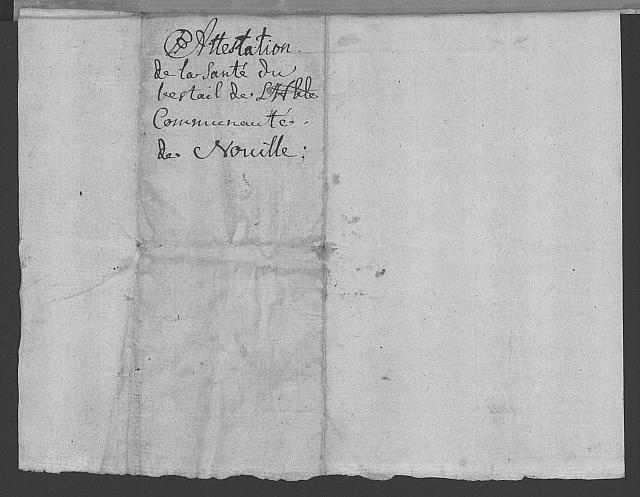 Attestation.
de la Santé du
bestail de
Communauté
de Noville: